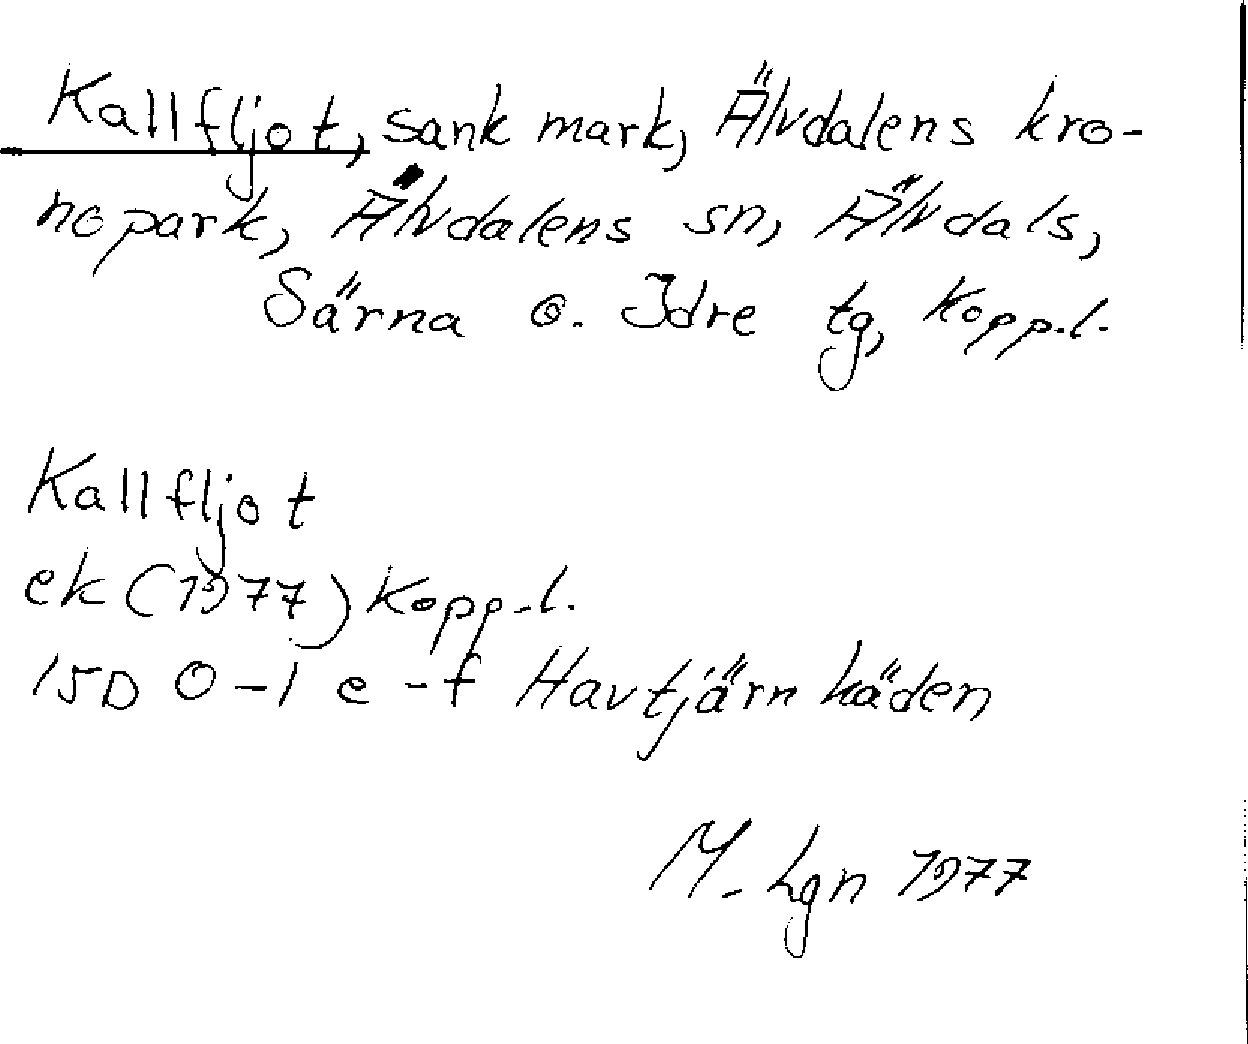 Kallfljot, sank mark, Älvdalens kro-
nopark, Älvdalens sn, Älvdals,
Särna o. Idre tg, Kopp.l.
Kallfljot
ek (1977) Kopp.l.
15D 0-1 e-f Havtjärnhäden
M. Lgn 1977